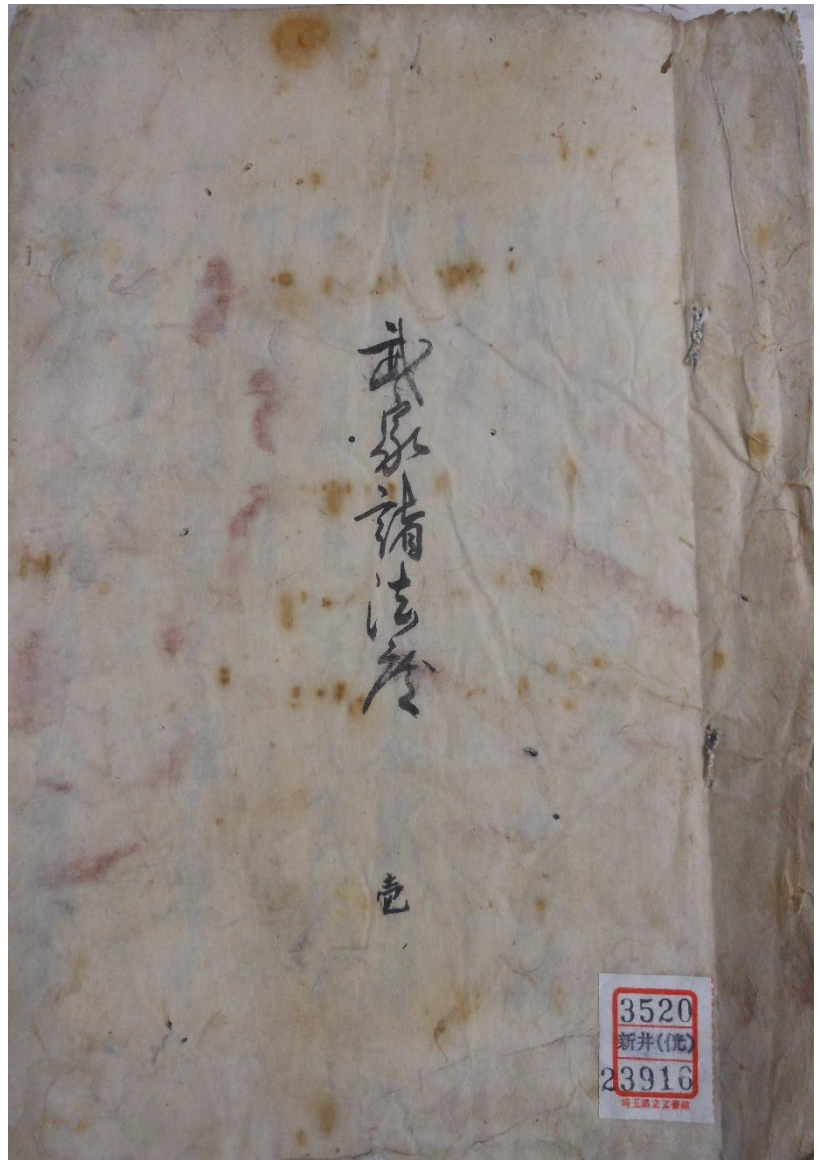 武家諸法度
壱
3520
新井(侊)
23916
埼玉県立文書館